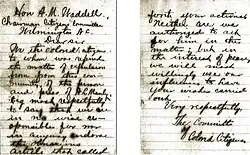 Hon A. M. Waddell,
Chairman Citizens Committee
Wilmington N.C.
Dear Sir
We the colored citizens
to whom was referred
the matter of expulsion
from this
community of the person
and press of A. L. Manly
beg most respectfully
to say that we are
in no wise
responsible for nor
in any way endorse
the obnoxious
article that called
forth your actions.
Neither are we
authorized to act
for him in this
matter; but in
the interest of peace,
we will most
willingly use our
influence to have
your wishes carried
out.
Very respectfully
The Committee
of Colored Citizens